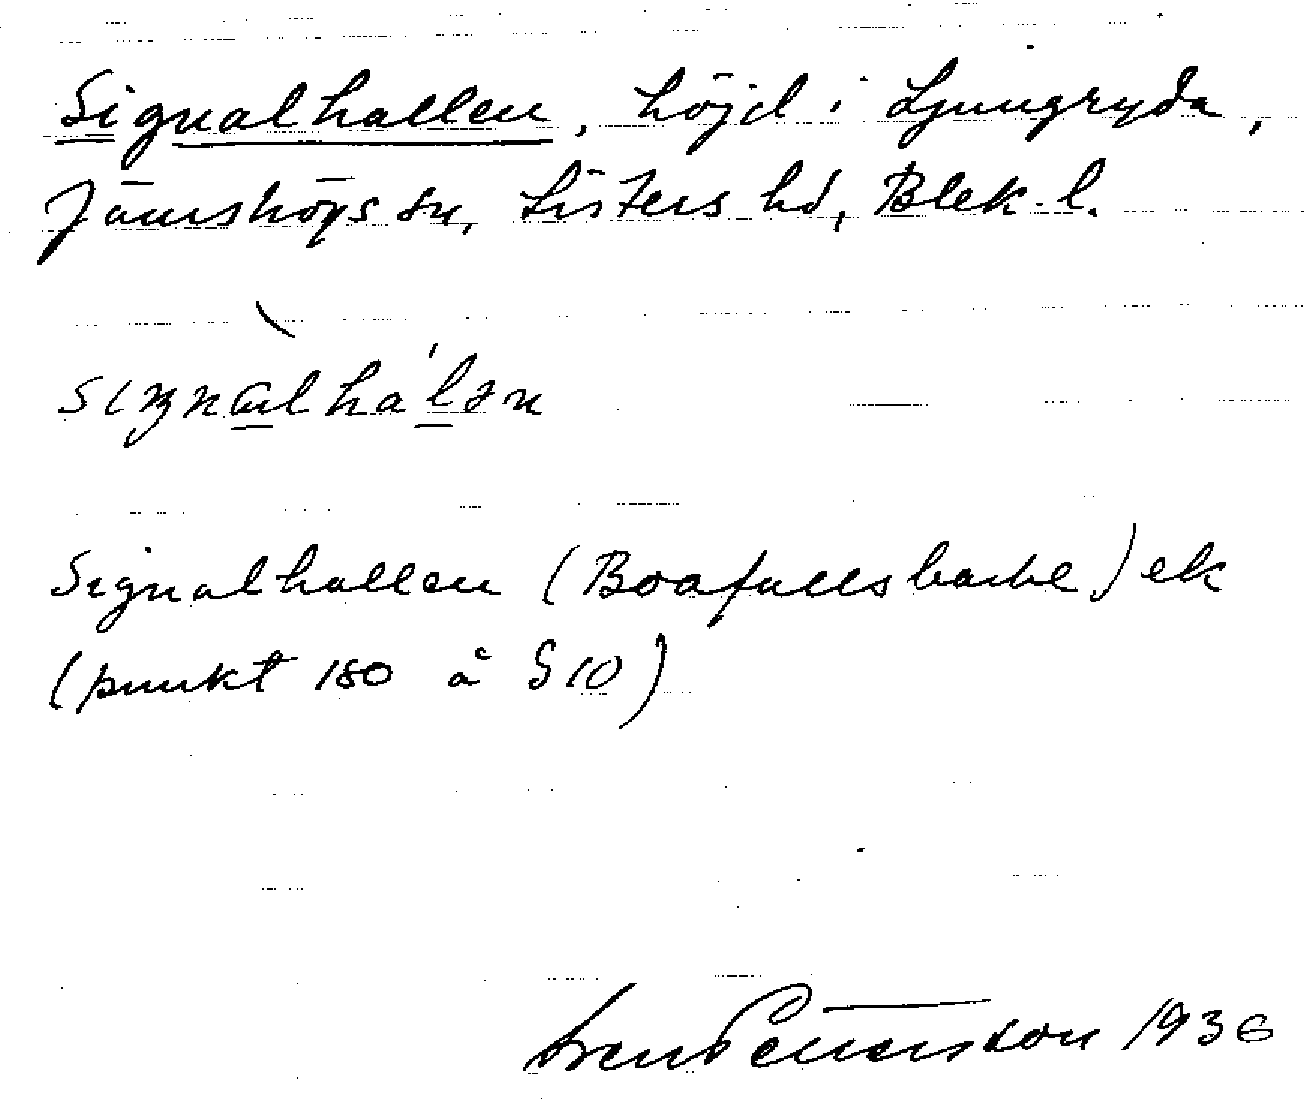 Signalhallen, höjd i Ljungryda,
Jämshögs sn, Listers hd, Blek. l.
sıgnalhalən
Signalhallen (Boafallsbacke) ek
(punkt 180 å § 10)
Sven Pettersson 1936